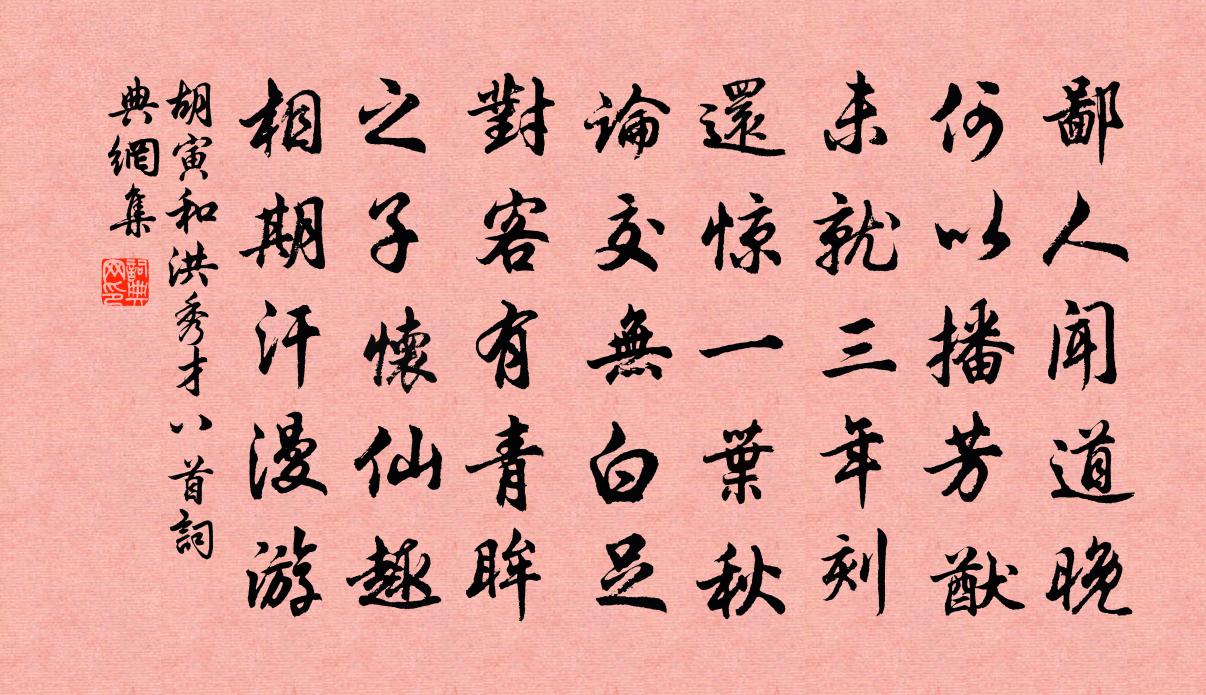 鄙人聞道晚
何以播芳猷
未就三年刻
還惊一葉秋
論交無白足
對客有青眸
之子懷仙趣
相期汗漫游
胡寅和洪秀才八首詞
典網集
詞典網印